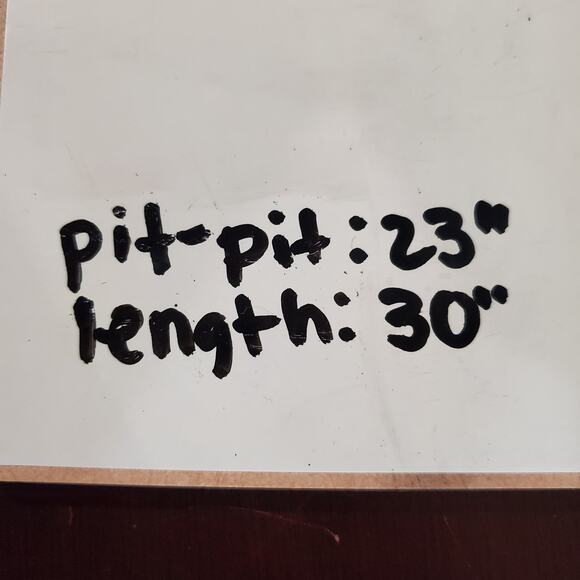 pit-pit: 23"
length: 30"